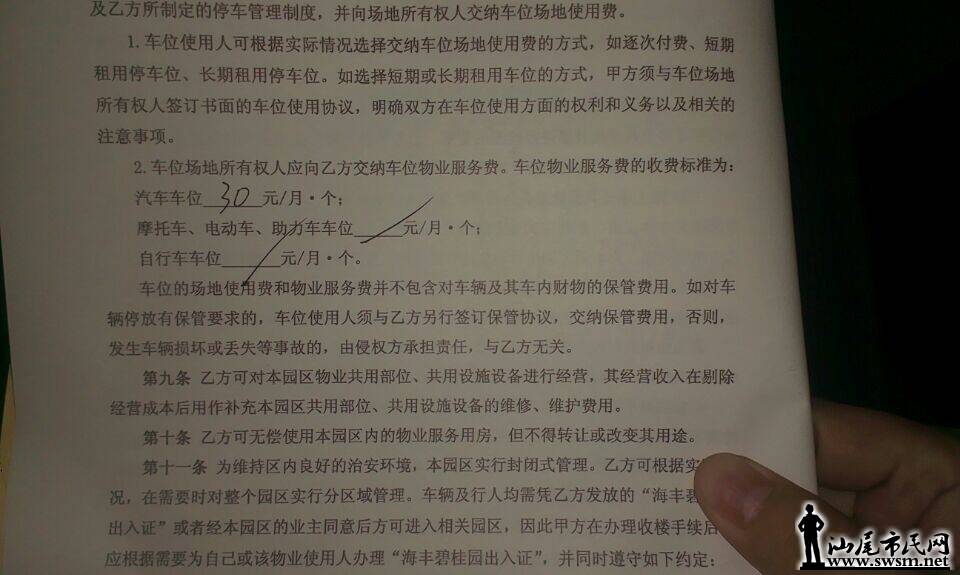 及乙方所制定的停车管理制度，并向场地所有权人交纳车位场地使用费。
1. 车位使用人可根据实际情况选择交纳车位场地使用费的方式，如逐次付费、短期
租用停车位、长期租用停车位。如选择短期或长期租用车位的方式，甲方须与车位场地
所有权人签订书面的车位使用协议，明确双方在车位使用方面的权利和义务以及相关的
注意事项。
2. 车位场地所有权人应向乙方交纳车位物业服务费。车位物业服务费的收费标准为：
汽车车位 30 元/月·个；
摩托车、电动车、助力车车位______元/月·个；
自行车车位______元/月·个。
车位的场地使用费和物业服务费并不包含对车辆及其车内财物的保管费用。如对车
辆停放有保管要求的，车位使用人须与乙方另行签订保管协议，交纳保管费用，否则，
发生车辆损坏或丢失等事故的，由侵权方承担责任，与乙方无关。
第九条 乙方可对本园区物业共用部位、共用设施设备进行经营，其经营收入在剔除
经营成本后用作补充本园区共用部位、共用设施设备的维修、维护费用。
第十条 乙方可无偿使用本园区内的物业服务用房，但不得转让或改变其用途。
第十一条 为维持区内良好的治安环境，本园区实行封闭式管理。乙方可根据实
况，在需要时对整个园区实行分区域管理。车辆及行人均需凭乙方发放的“海丰碧
出入证”或者经本园区的业主同意后方可进入相关园区，因此甲方在办理收楼手续后
应根据需要为自己或该物业使用人办理“海丰碧桂园出入证”，并同时遵守如下约定：
汕尾市民网
www.swsm.net